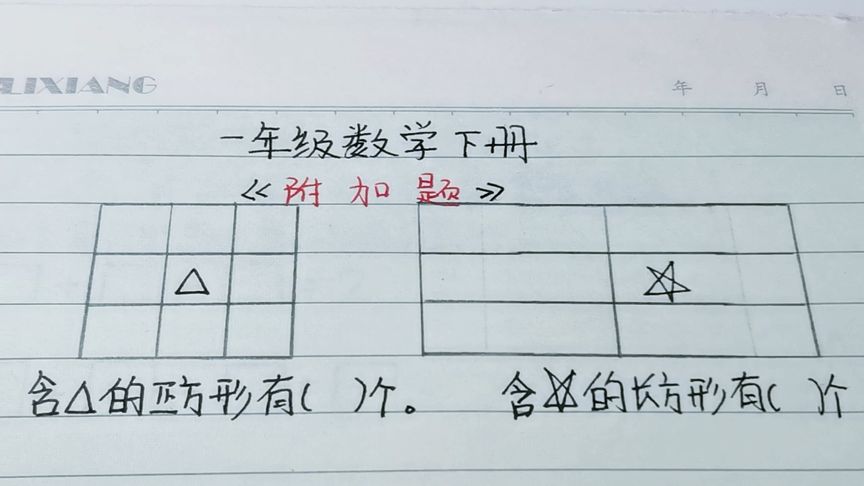 LIXIANG 年 月 日
一年级数学下册
《附加题》
含△的正方形有( )个。 含☆的长方形有( )个